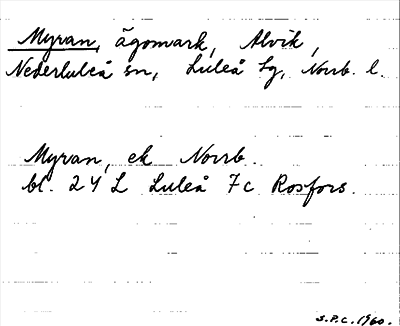 Myran, ägomark, Alvik,
Nederluleå sn, Luleå Lg, Norrb. l.
Myran, ek Norrb.
bl. 24 L Luleå 7c Rosfors.
S.P.C. 1960.